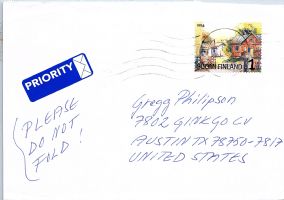 PRIORITY
SUOMI FINLAND
1
PLEASE
DO NOT
FOLD!
Gregg Philipson
7802 GINKGO CV
AUSTIN TX 78750-7817
UNITED STATES